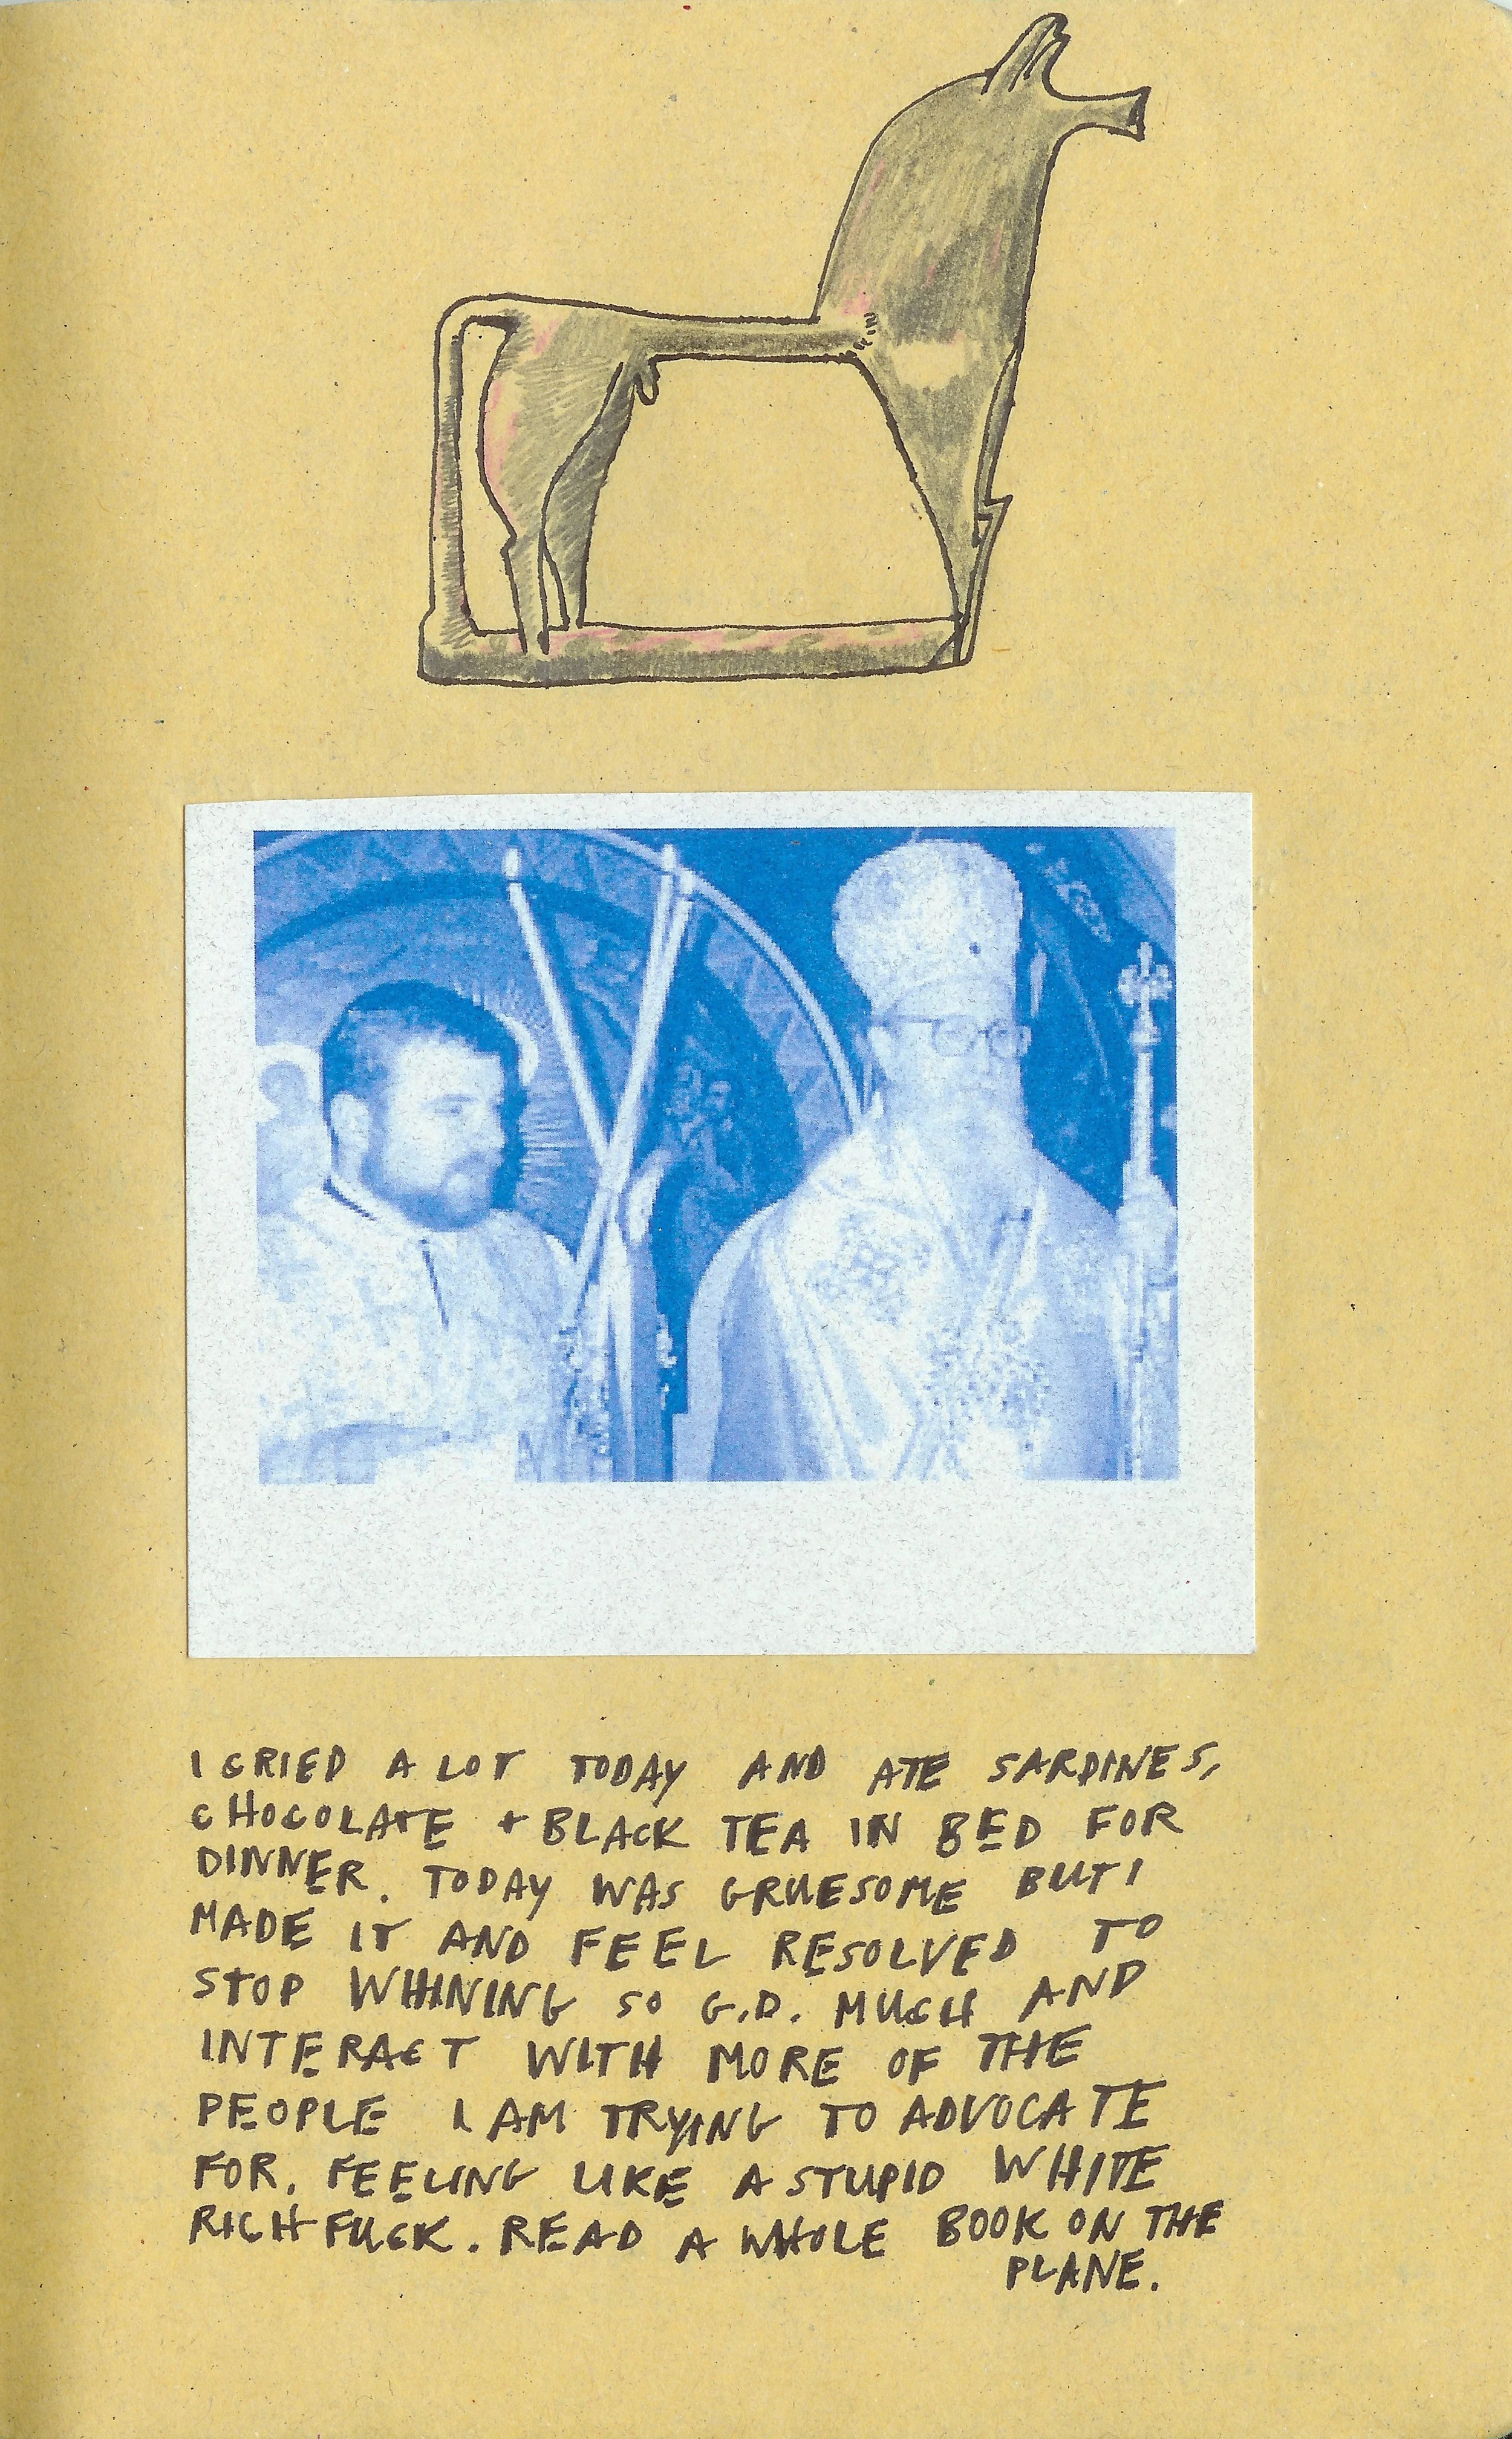 I CRIED A LOT TODAY AND ATE SARDINES,
CHOCOLATE + BLACK TEA IN BED FOR
DINNER. TODAY WAS GRUESOME BUT I
MADE IT AND FEEL RESOLVED TO
STOP WHINING SO G.D. MUCH AND
INTERACT WITH MORE OF THE
PEOPLE I AM TRYING TO ADVOCATE
FOR. FEELING LIKE A STUPID WHITE
RICH FUCK. READ A WHOLE BOOK ON THE
PLANE.